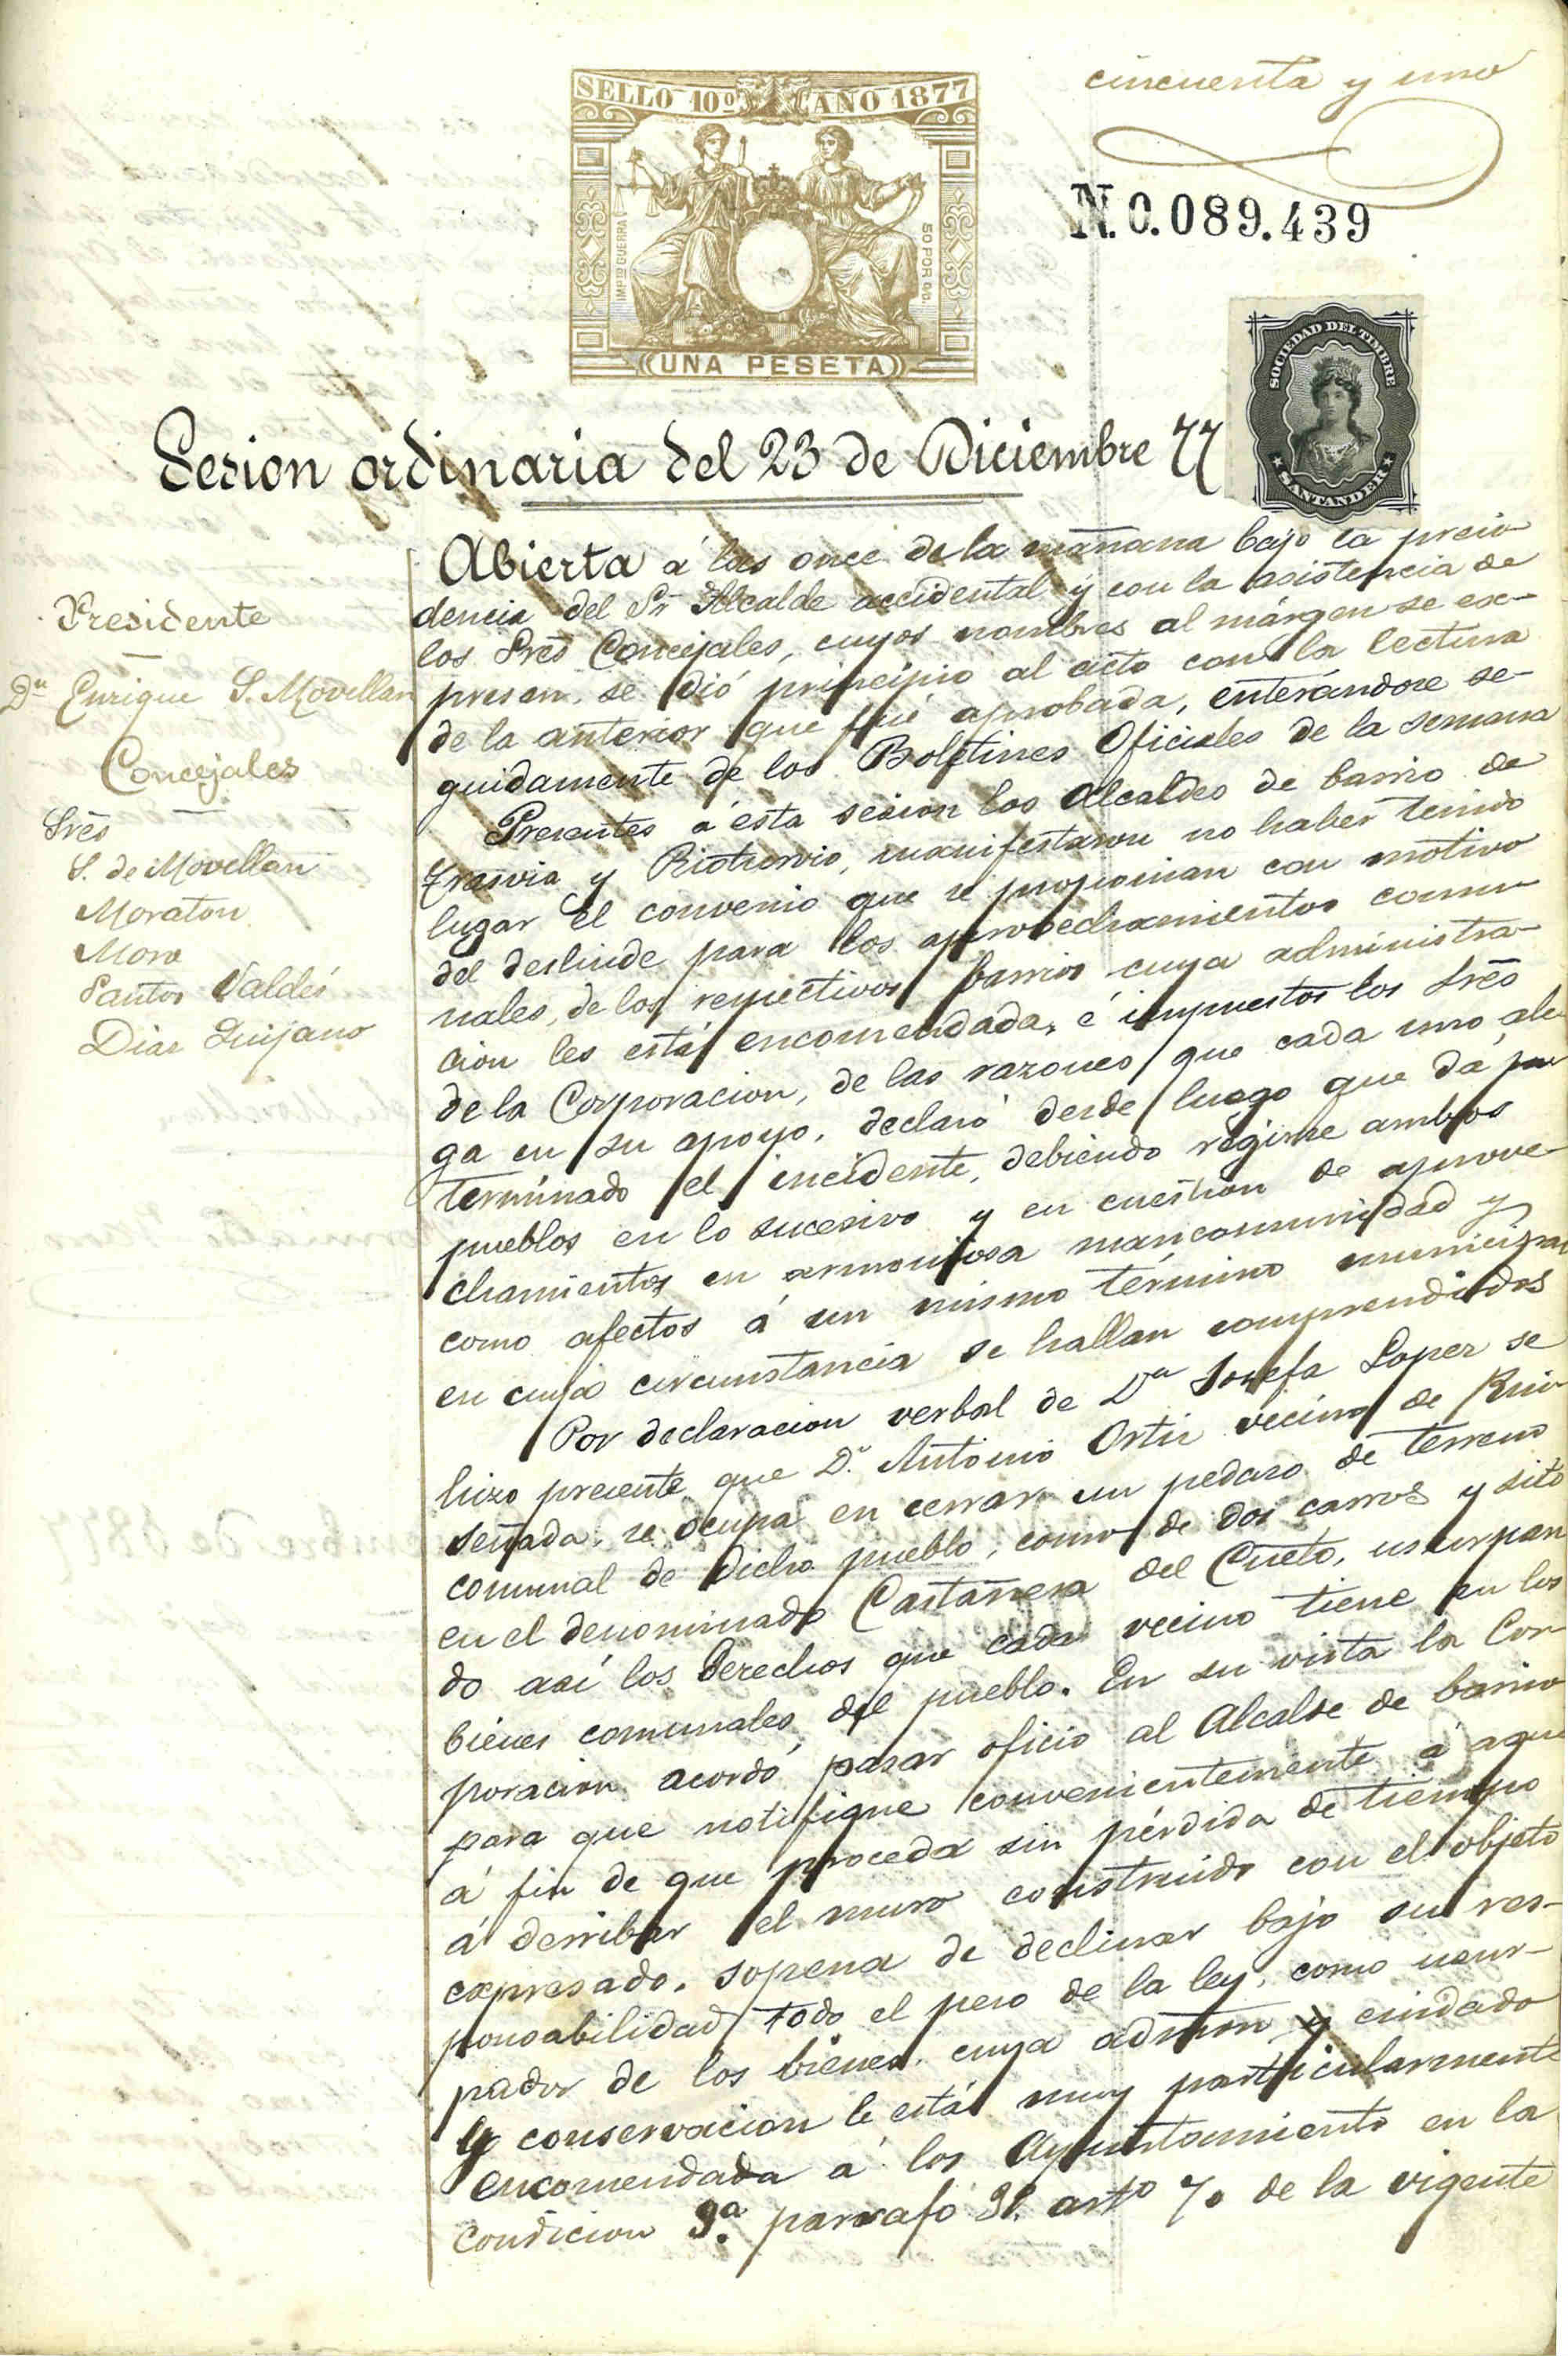 cincuenta y uno
SELLO 10º AÑO 1877
IMPTO GUERRA
50 POR C/O.
UNA PESETA
N. 0.089.439
SOCIEDAD DEL TIMBRE
SANTANDER
Sesion ordinaria del 23 de Diciembre 77
Presidente
Dn Enrique S. Movellan
Concejales
Sres
S. de Movellan
Moraton
Mora
Santos Valdés
Diaz Quijano
Abierta á las once de la mañana bajo la presi
dencia del Sr Alcalde accidental y con la asistencia de
los Sres Concejales, cuyos nombres al márgen se es-
presan, se dió principio al acto con la lectura
de la anterior que fué aprobada, enterándose se-
guidamente de los Boletines Oficiales de la semana
Presentes á esta sesion los Alcaldes de barrio de
y manifestaron no haber tenido
lugar el convenio que se proponian con motivo
del deslinde para los aprovechamientos comu
nales, de los respectivos barrios cuya administra-
cion les está encomendada, é impuestos los Sres
de la Corporacion, de las razones que cada uno ale
ga en su apoyo, declaró desde luego que dá por
terminado el incidente, debiendo regirse ambos
pueblos en lo sucesivo y en cuestion de aprove-
chamientos en armoniosa mancomunidad y
como afectos á un mismo término municipal
en cuya circunstancia se hallan comprendidos
Por declaracion verbal de Da Josefa Lopez se
hizo presente que D. Antonio Ortiz vecino de Rui
señada, se ocupa en cerrar un pedazo de terreno
comunal de dicho pueblo, como de dos carros y sito
en el denominado Castañera del Cueto, usurpan
do asi los derechos que cada vecino tiene en los
bienes comunales del pueblo. En su vista la Cor
poracion acordó pasar oficio al Alcalde de barrio
para que notifique convenientemente á aquel
á fin de que proceda sin pérdida de tiempo
á derribar el muro construido con el objeto
expresado, sopena de declinar bajo su res-
ponsabilidad todo el peso de la ley, como usur-
pador de los bienes, cuya admon y cuidado
y conservacion le está muy particularmente
encomendada á los Ayuntamiento en la
condicion 3.ª parrafo 3º. arto 70 de la vigente